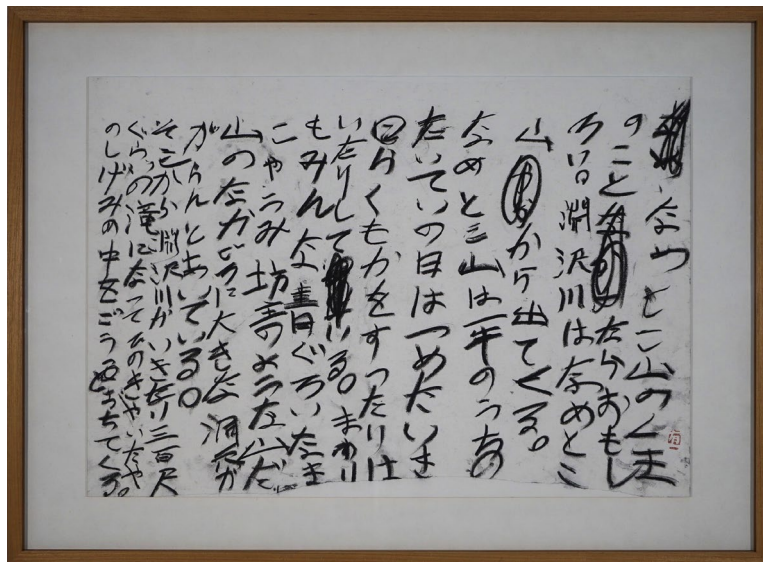 なめとこ山のくま
のことならおもし
ろい。淵沢川はなめとこ
山から出てくる。
なめとこ山は一年のうちの
たいていの日はつめたいき
くもかをすったりは
いたりしている。まわり
もみんな青ぐろいなま
こやうみ坊主のような山だ
山のなかごろに大きな洞穴が
がらんとあいている。
そこから淵沢川がいきなり三百尺
ぐらいの滝になってひのきやいたや
のしげみの中をごうとおちてくる。